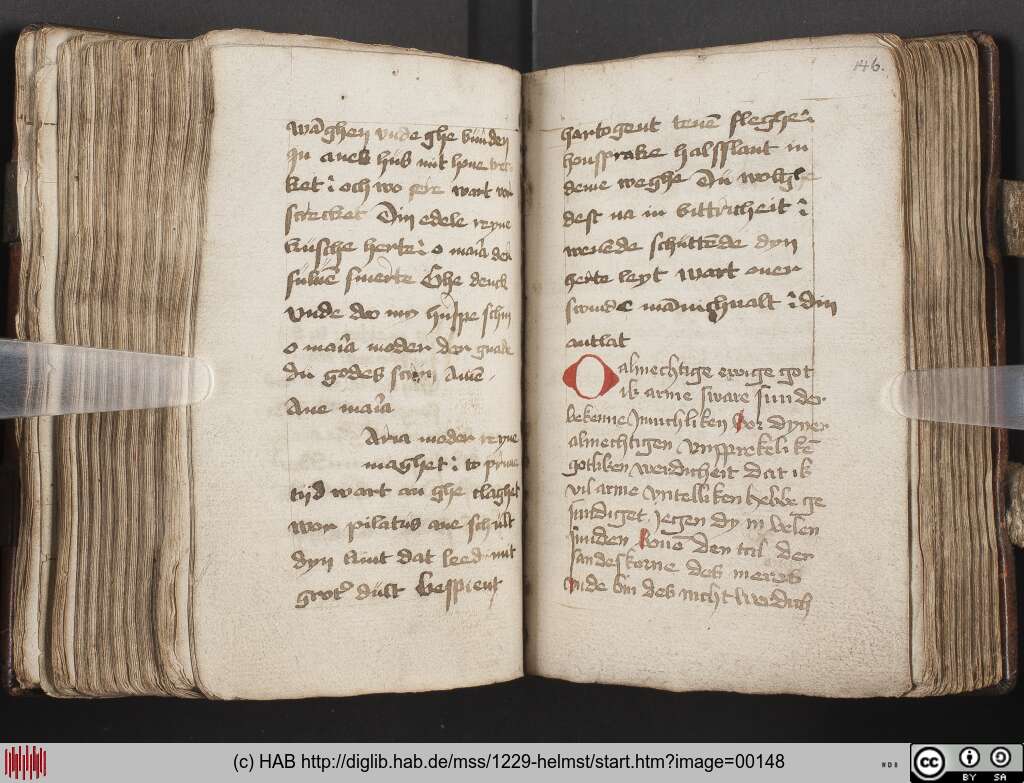 vnde ghe bunden
In anes hus mit hone
ket och wo wart
screcket Din edele reyne
kusche herte o maria der
suluen smerte Ghe denck
vnde do my hulpe schin
o maria moder der gnade
du godes Amen
Aue maria
Aria moder reyne
maghet to prime
tijd wart an ghe claghet
wor pilatus ane schult
dyn kint dat leed mit
groter dult bespient
146.
hartogent
honsprake halsslant in
deme weghe Du
dest na in bitticheit
wenede schuttede dyn
herte leyt wart ouer
stonde mannichualt din
antlat
O almechtige ewige got
ik arme sware sunder
bekenne Innichliken vor dyner
almechtigen vnsprekeliken
gotliken werdicheit dat ik
vil arme vntelliken hebbe ge
sundiget Jegen dy in velen
sunden bouen den tal der
sandeskorne des meres
vnde bin des nicht werdich
(c) HAB http://diglib.hab.de/mss/1229-helmst/start.htm?image=00148
WDB
cc BY SA